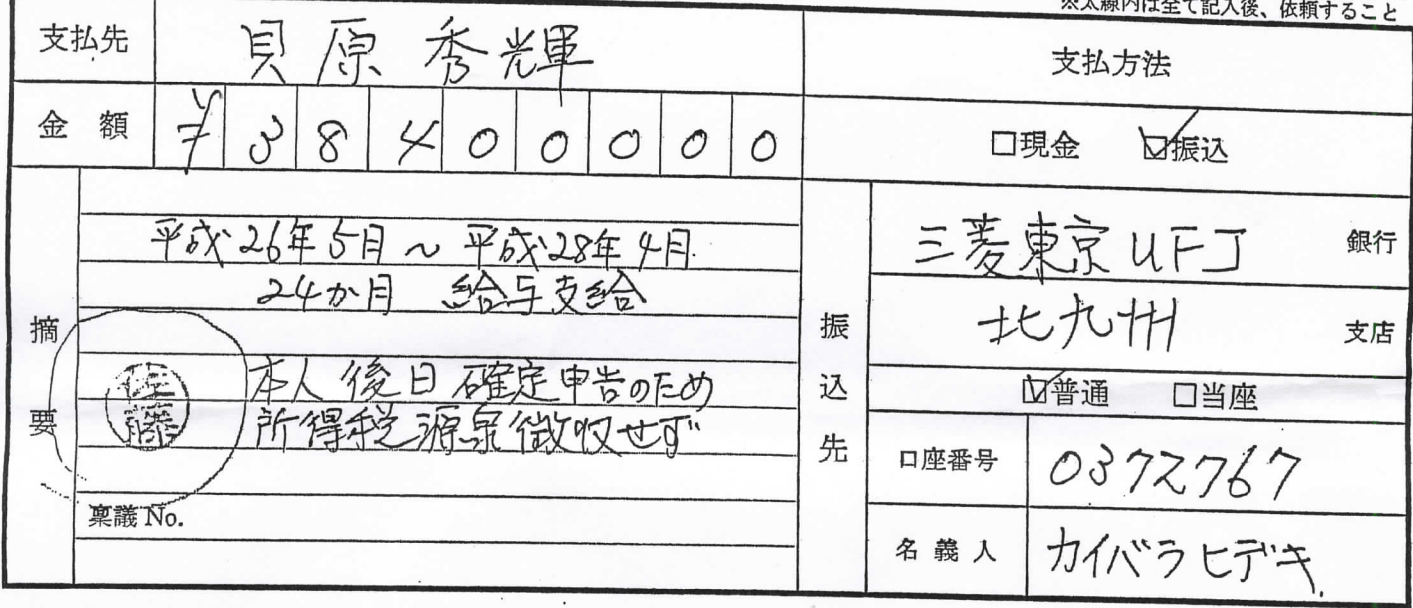 ※太線内は全て記入後、依頼すること
支払先 貝原秀輝 支払方法
金額 ¥38400000 □現金 ☑振込
摘要
平成26年5月～平成28年4月
24か月 給与支給
佐藤
本人後日確定申告のため
所得税源泉徴収せず
稟議No.
振込先
三菱東京UFJ 銀行
北九州 支店
☑普通 □当座
口座番号 0372767
名義人 カイバラヒデキ